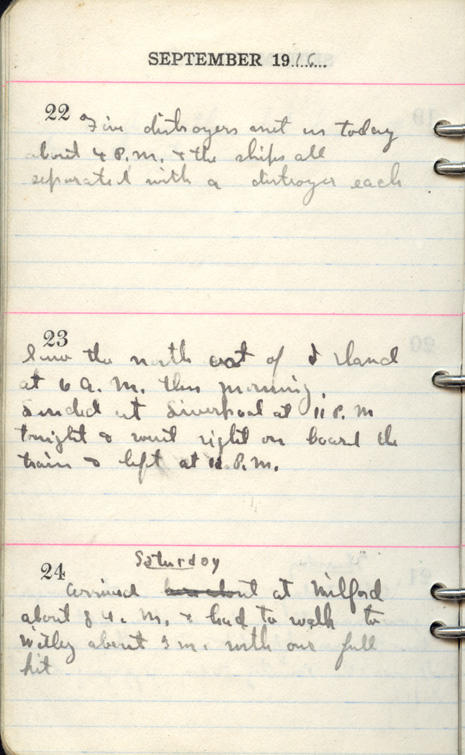 SEPTEMBER 1916
22 Five distroyers met us today
about 4 P.M. & the ships all
separated with a distroyer each
23
Saw the north east of Irland
at 6 A.M. this morning.
Landed at Liverpool at 11 P.M
tonight & went right on board the
train & left at 12 P.M.
Saturday
24
arrived at Milford
about 8 A.M. & had to walk to
Witley about 3 m. with our full
kit